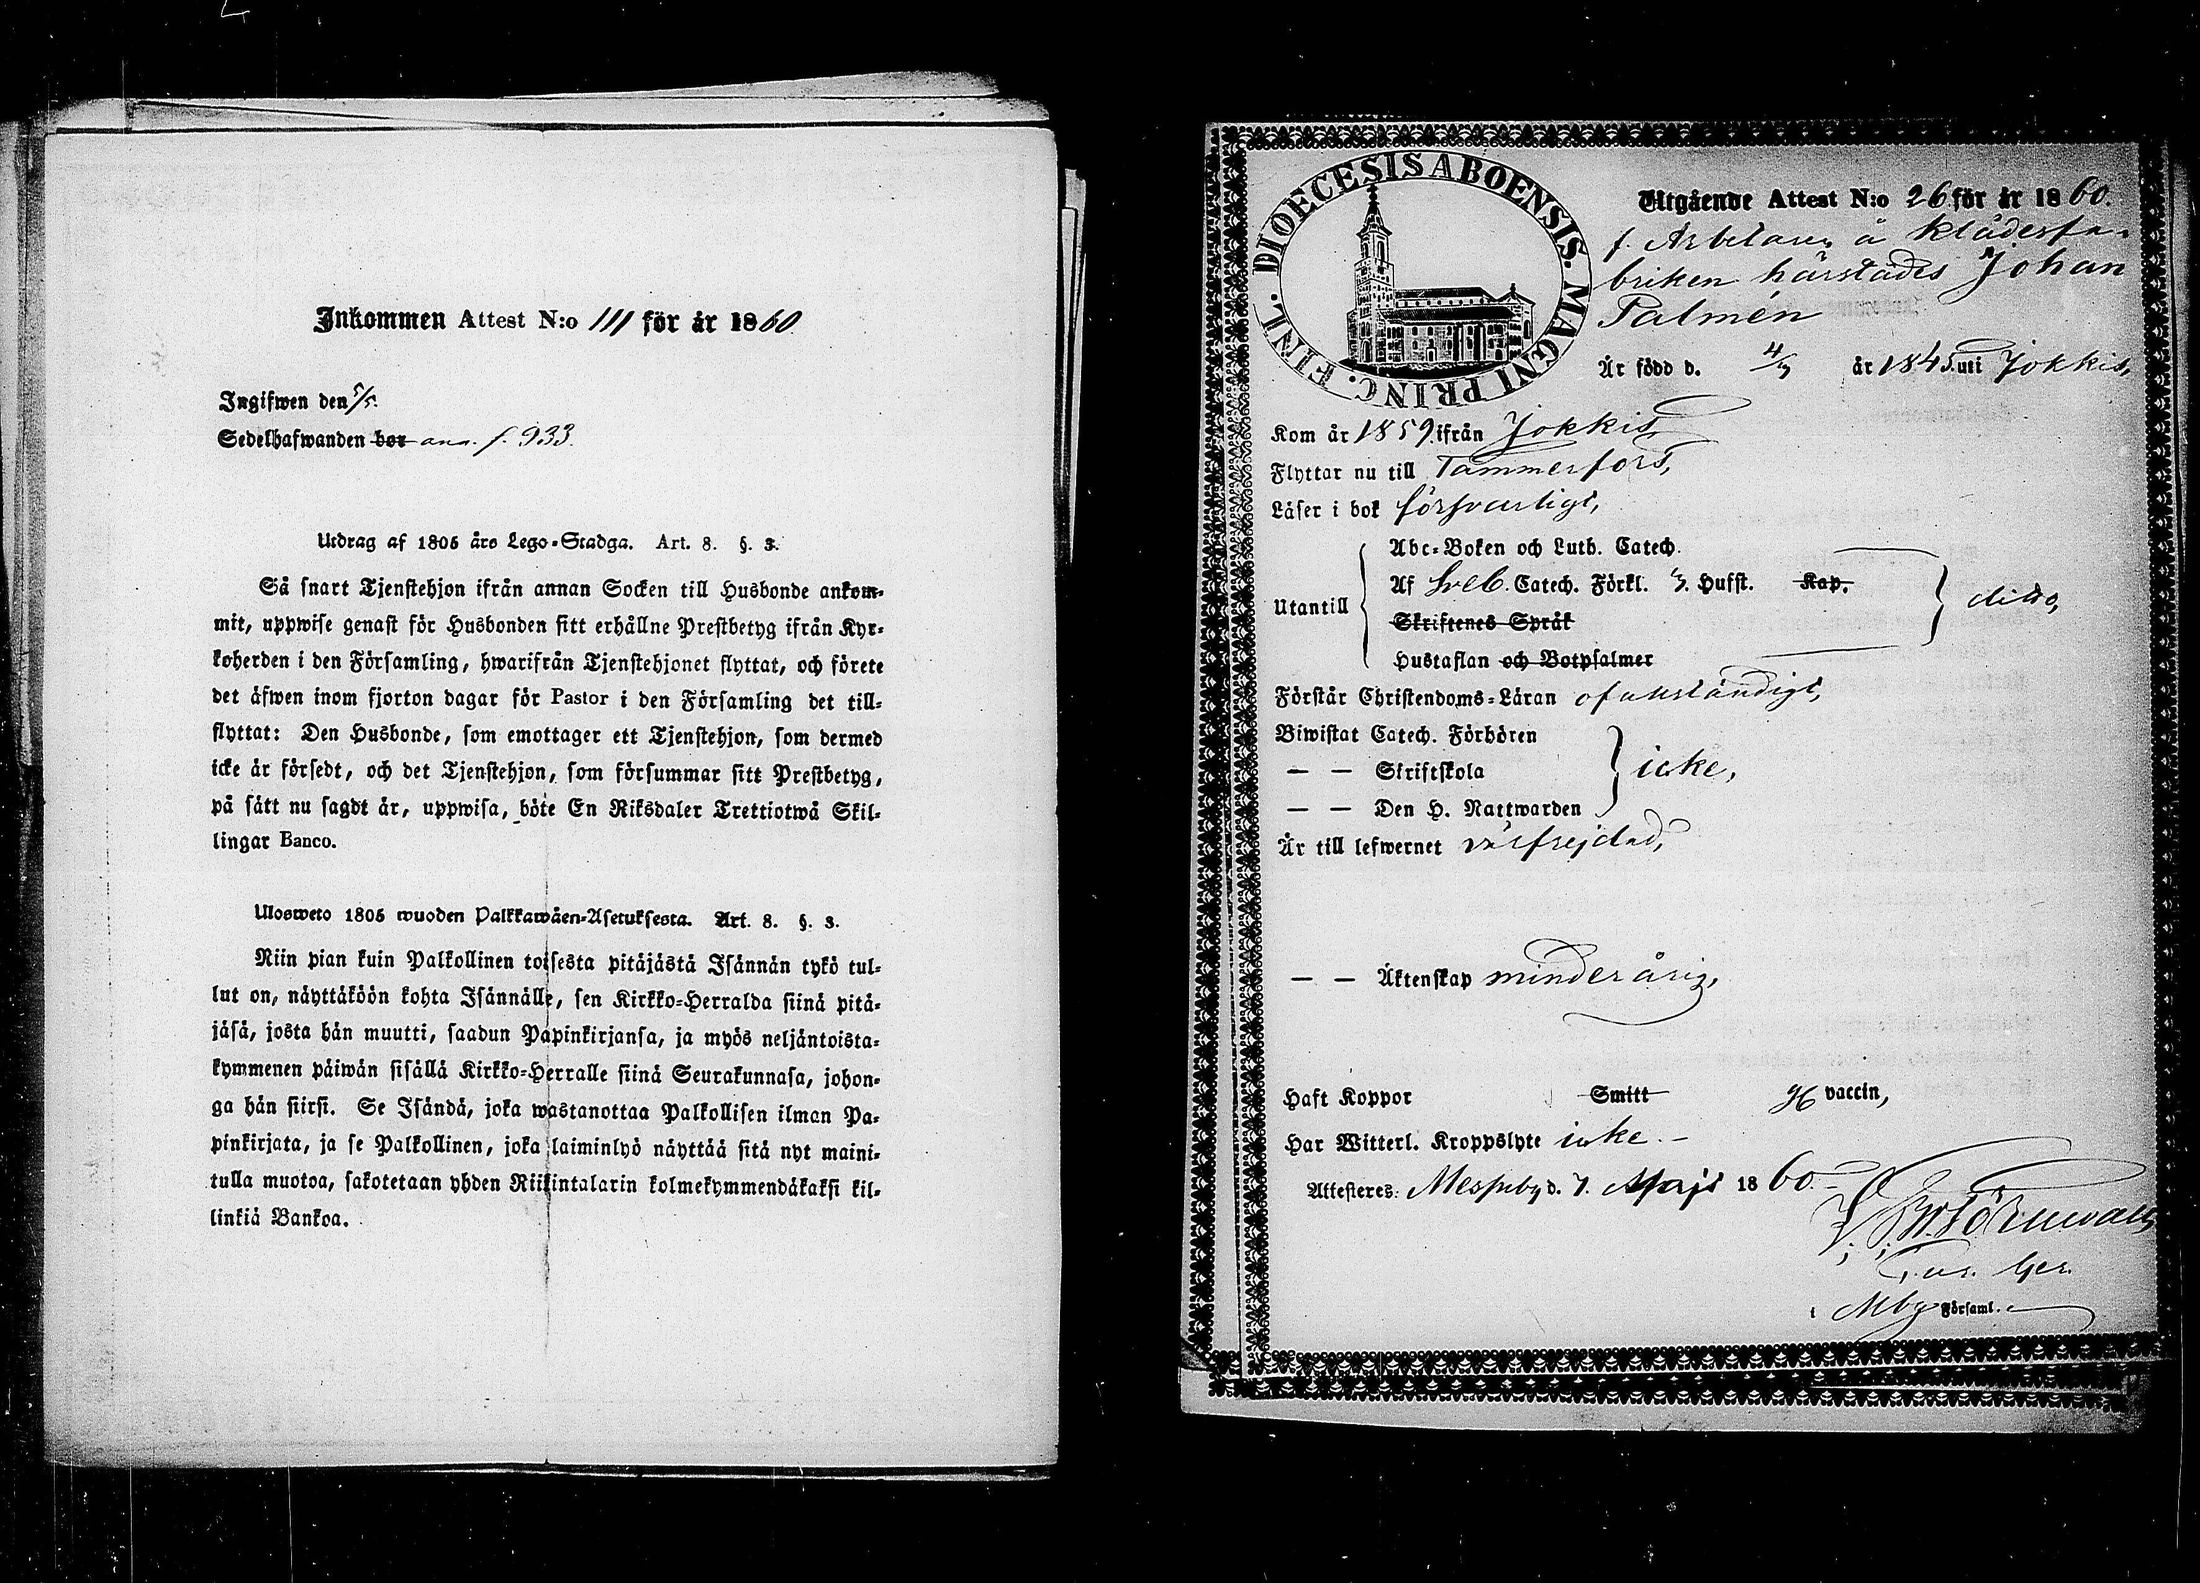 Inkommen Attest N:o 111 för år 1860
Ingifwen den 5/5.
Sedelhafwanden bor ann. f. 933.
Utdrag af 1805 års Lego-Stadga. Art. 8. §. 3.
Så snart Tjenstehjon ifrån annan Socken till Husbonde ankom-
mit, uppwise genast för Husbonden sitt erhållne Prestbetyg ifrån Kyr-
koherden i den Församling, hwarifrån Tjenstehjonet flyttat, och förete
det äfwen inom fjorton dagar för Pastor i den Församling det till-
flyttat: Den Husbonde, som emottager ett Tjenstehjon, som dermed
icke är försedt, och det Tjenstehjon, som försummar sitt Prestbetyg,
på sätt nu sagdt är, uppwisa, böte En Riksdaler Trettiotwå Skil-
lingar Banco.
Ulosweto 1805 wuoden Palkkawäen-Asetuksesta. Art. 8. §. 3.
Niin pian kuin Palkollinen toisesta pitäjästä Isännän tykö tul-
lut on, näyttäköön kohta Isännälle, sen Kirkko-Herralda siinä pitä-
jäsä, josta hän muutti, saadun Papinkirjansa, ja myös neljäntoista-
kymmenen päiwän sisällä Kirkko-Herralle siinä Seurakunnasa, johon-
ga hän siirsi. Se Isändä, joka wastanottaa Palkollisen ilman Pa-
pinkirjata, ja se Palkollinen, joka laiminlyö näyttää sitä nyt maini-
tulla muotoa, sakotetaan yhden Riikintalarin kolmekymmendäkaksi kil-
linkiä Bankoa.
DIOECESIS ABOENSIS. MAGNI PRINC. FINL.
Utgående Attest N:o 26 för år 1860.
f. Arbetaren å klädesfa-
briken härstädes Johan
Palmén
Är född d. 4/3 år 1845. uti Jokkis,
Kom år 1859. ifrån Jokkis,
Flyttar nu till Tammerfors,
Läser i bok försvarligt,
Abc-Boken och Luth. Catech.
Af Sveb. Catech. Förkl. 3. Hufst. Kap.
Utantill ditto,
Skriftenes Språk
Hustaflan och Botpsalmer
Förstår Christendoms-Läran ofullständigt,
Biwistat Catech. Förhören
— — Skriftskola icke,
— — Den H. Nattwarden
Är till lefwernet välfrejdad,
— — Äktenskap minderårig,
Haft Koppor Smitt vaccin,
Har Witterl. Kroppslyte icke. -
Attesteres: Messuby d. 7. Maji 1860. -
Törnwall
Mby Församl.